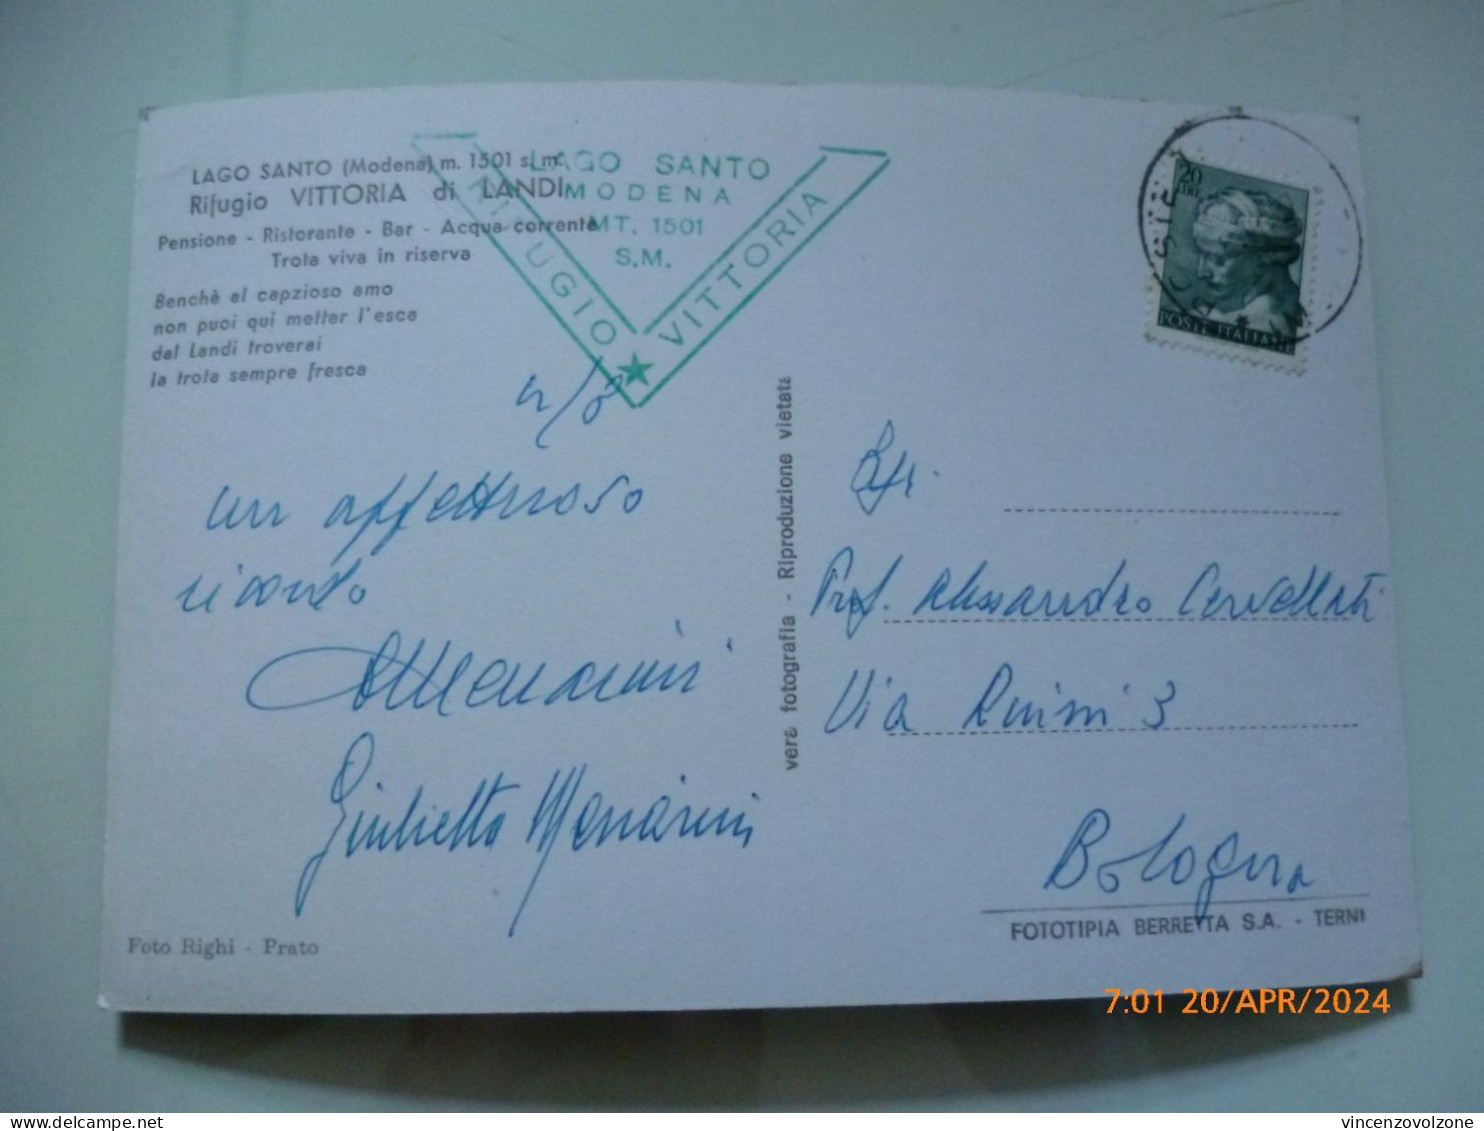 LAGO SANTO (Modena) m. 1501 s. m.
Rifugio VITTORIA di LANDI
Pensione - Ristorante - Bar - Acqua corrente
Trota viva in riserva
Benchè al capzioso amo
non puoi qui metter l'esca
dal Landi troverai
la trota sempre fresca
LAGO SANTO
MODENA
MT. 1501
S.M.
RIFUGIO ★ VITTORIA
un affettuoso
ricordo
Giulietta Menarini
Foto Righi - Prato
vera fotografia - Riproduzione vietata
20
LIRE
POSTE ITALIANE
Prof. Alessandro Cervellati
Via Ruini 3
Bologna
FOTOTIPIA BERRETTA S.A. - TERNI
7:01 20/APR/2024
vincenzovolzone